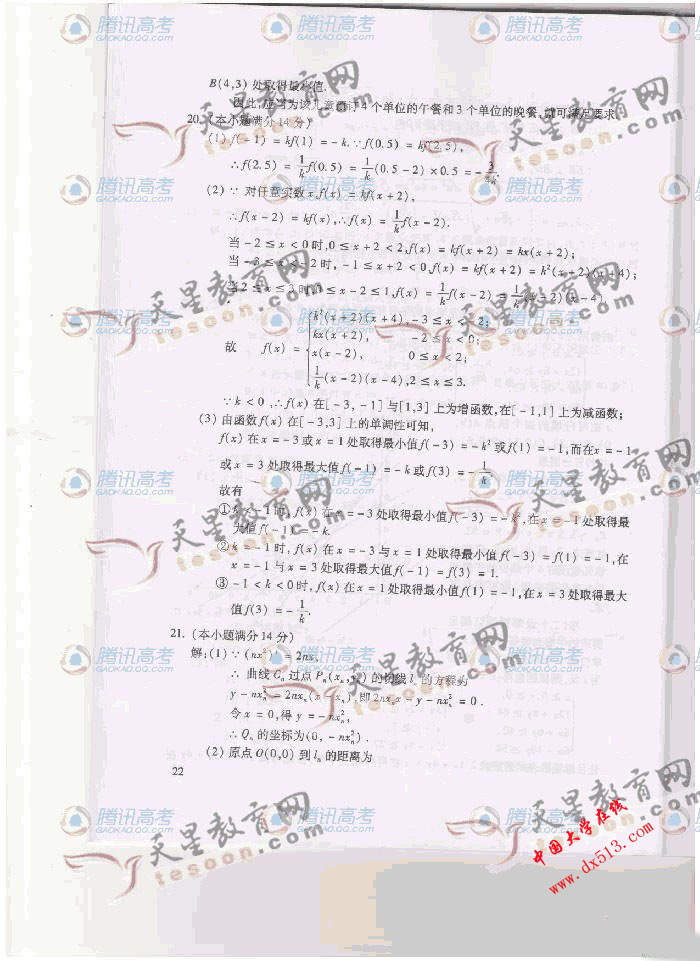 B(4,3) 处取得最小值.
因此,应当为该儿童预订4个单位的午餐和3个单位的晚餐,就可满足要求.
20. (本小题满分14分)
(1) f(-1) = kf(1) = -k. ∵ f(0.5) = kf(2.5),
∴ f(2.5) = 1/k f(0.5) = 1/k (0.5 - 2) × 0.5 = - 3/4k.
(2) ∵ 对任意实数 x, f(x) = kf(x+2),
∴ f(x-2) = kf(x), ∴ f(x) = 1/k f(x-2).
当 -2 ≤ x < 0 时, 0 ≤ x+2 < 2, f(x) = kf(x+2) = kx(x+2);
当 -3 ≤ x < -2 时, -1 ≤ x+2 < 0, f(x) = kf(x+2) = k²(x+2)(x+4);
当 2 ≤ x ≤ 3 时, 0 ≤ x-2 ≤ 1, f(x) = 1/k f(x-2) = 1/k (x-2)(x-4)
k²(x+2)(x+4), -3 ≤ x < -2;
kx(x+2), -2 ≤ x < 0;
故 f(x) = x(x-2), 0 ≤ x < 2;
1/k (x-2)(x-4), 2 ≤ x ≤ 3.
∵ k < 0, ∴ f(x) 在 [-3, -1] 与 [1,3] 上为增函数, 在 [-1,1] 上为减函数;
(3) 由函数 f(x) 在 [-3,3] 上的单调性可知,
f(x) 在 x = -3 或 x = 1 处取得最小值 f(-3) = -k² 或 f(1) = -1, 而在 x = -1
或 x = 3 处取得最大值 f(-1) = -k 或 f(3) = - 1/k.
故有
① k < -1 时, f(x) 在 x = -3 处取得最小值 f(-3) = -k², 在 x = -1 处取得最
大值 f(-1) = -k.
② k = -1 时, f(x) 在 x = -3 与 x = 1 处取得最小值 f(-3) = f(1) = -1, 在
x = -1 与 x = 3 处取得最大值 f(-1) = f(3) = 1.
③ -1 < k < 0 时, f(x) 在 x = 1 处取得最小值 f(1) = -1, 在 x = 3 处取得最大
值 f(3) = - 1/k.
21. (本小题满分14分)
解: (1) ∵ (nx²)' = 2nx,
∴ 曲线 Cₙ 过点 Pₙ(xₙ, yₙ) 的切线 lₙ 的方程为
y - nxₙ² = 2nxₙ(x - xₙ), 即 2nxₙx - y - nxₙ² = 0.
令 x = 0, 得 y = -nxₙ²,
∴ Qₙ 的坐标为 (0, -nxₙ²).
(2) 原点 O(0,0) 到 lₙ 的距离为
22
腾讯高考
GAOKAO.QQ.COM
天星教育网
tesoon.com
中国大学在线
www.dx513.com